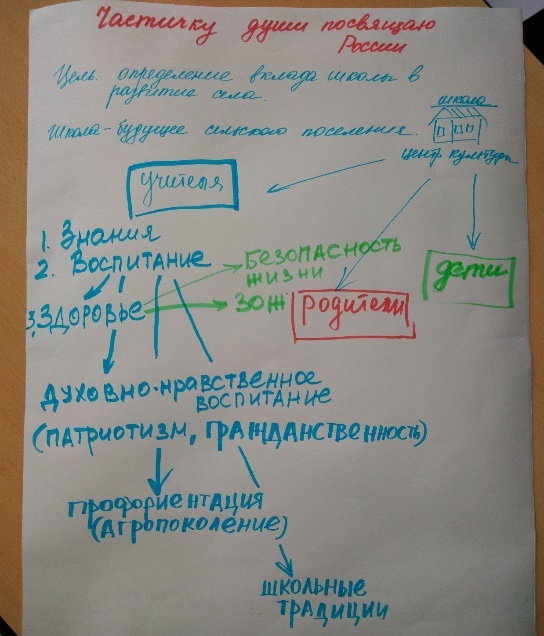 Частичку души посвящаю
России
Цель: определение вклада школы в
развитие села.
Школа - будущее сельского поселения.
школа
центр культуры
учителя
1. Знания
2. Воспитание
Безопасность
жизни
дети
3. Здоровье
ЗОЖ
родители
Духовно-нравственное
воспитание
(патриотизм, гражданственность)
Профориентация
(Агропоколение)
школьные
традиции